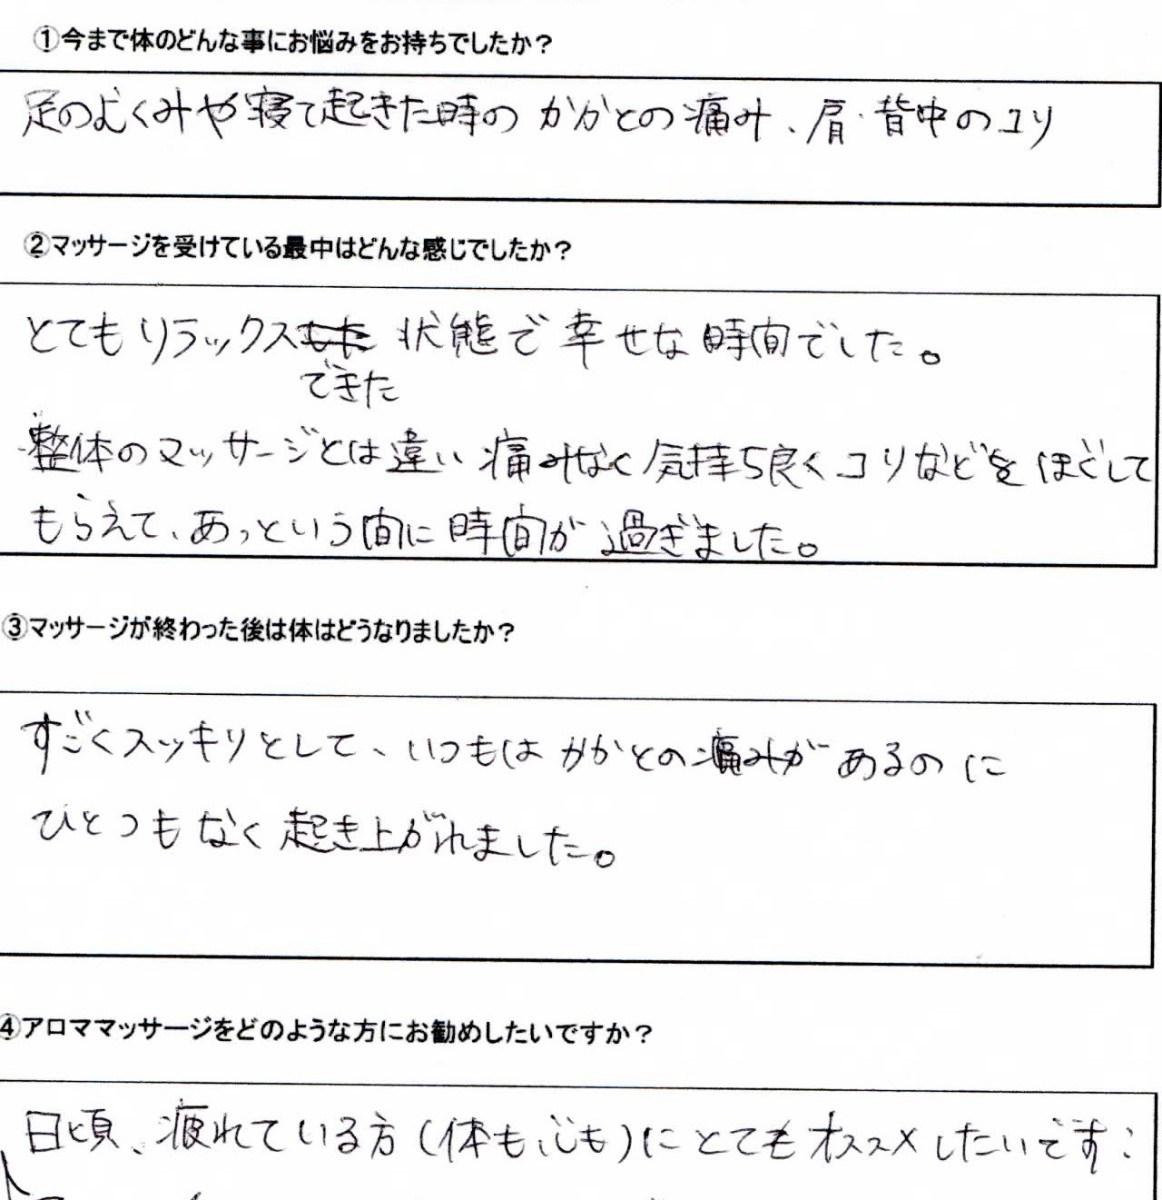 ①今まで体のどんな事にお悩みをお持ちでしたか？
足のむくみや寝て起きた時のかかとの痛み、肩・背中のコリ
②マッサージを受けている最中はどんな感じでしたか？
とてもリラックスできた状態で幸せな時間でした。
整体のマッサージとは違い痛みなく気持ち良くコリなどをほぐして
もらえて、あっという間に時間が過ぎました。
③マッサージが終わった後は体はどうなりましたか？
すごくスッキリとして、いつもはかかとの痛みがあるのに
ひとつもなく起き上がれました。
④アロママッサージをどのような方にお勧めしたいですか？
日頃、疲れている方(体も心も)にとてもオススメしたいです